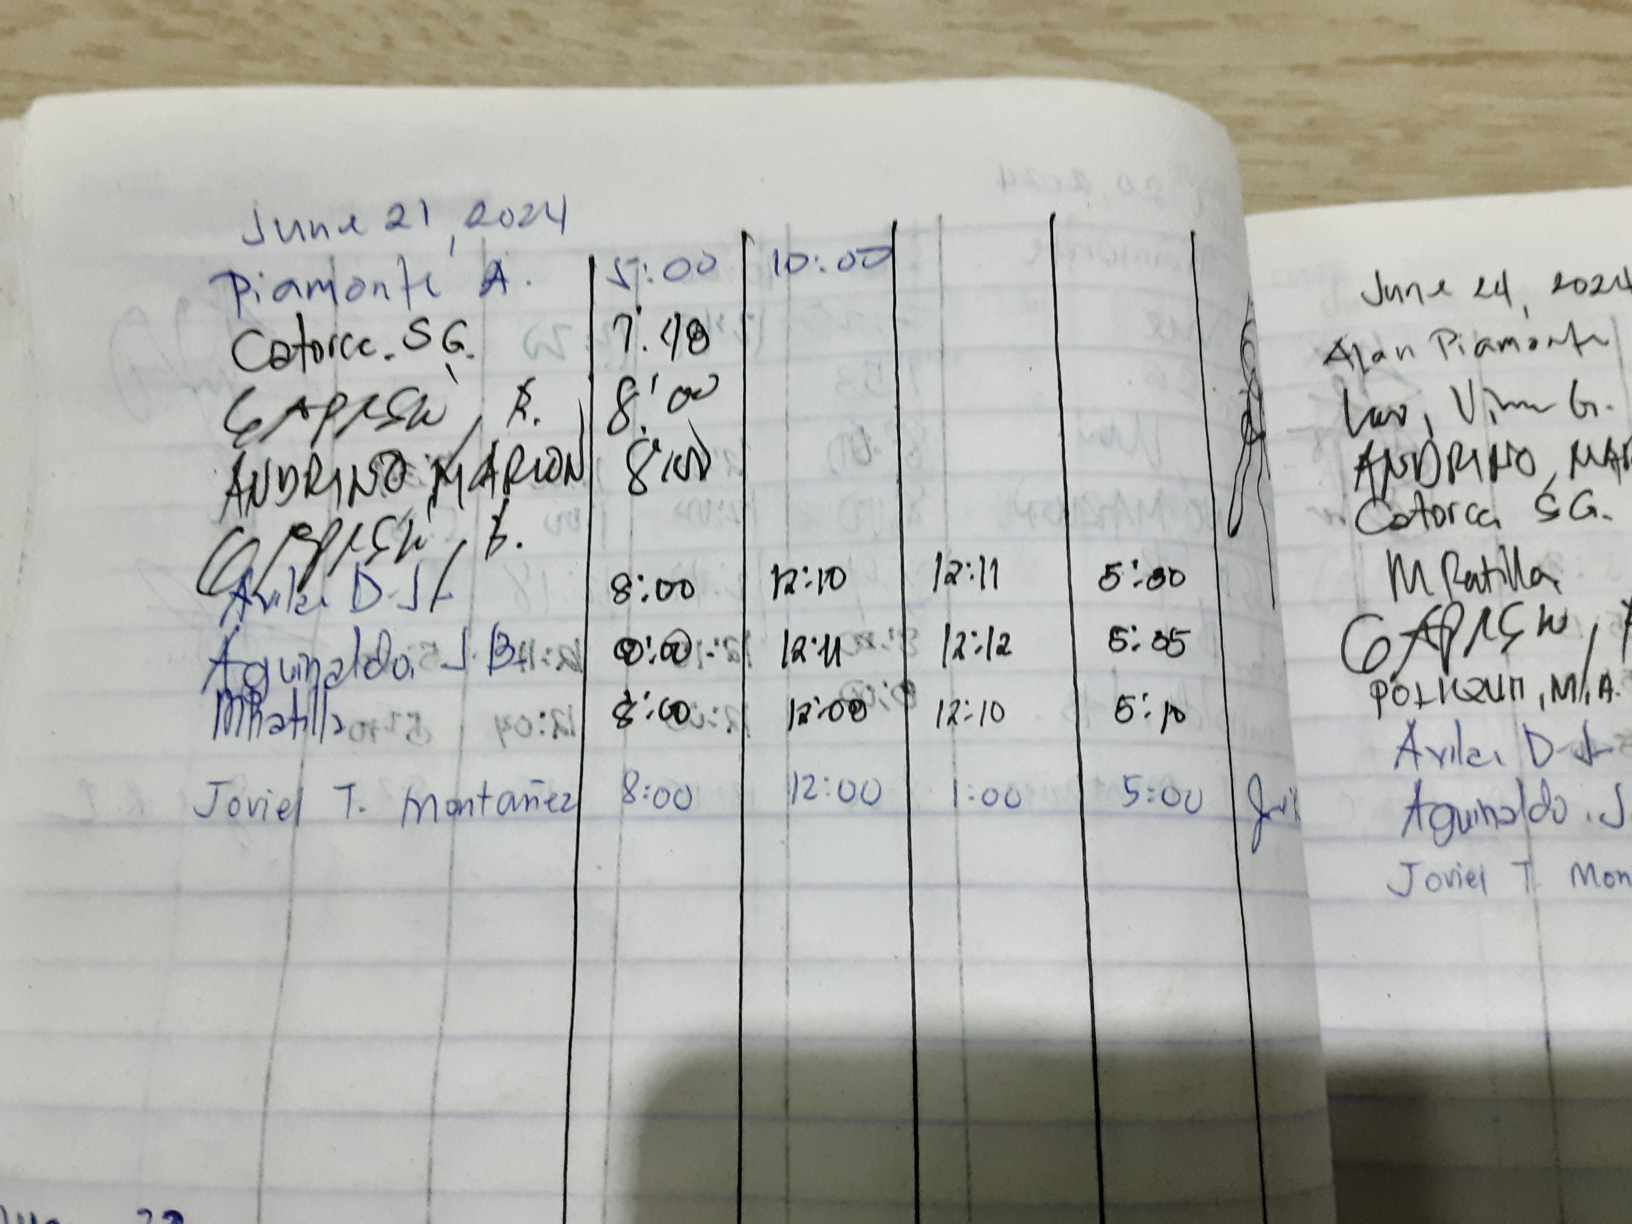 June 21, 2024
Piamonte A. 5:00 10:00
Catorce. S G. 7:48
8:00
ANDRINO, MARION 8:00
Avila D-Jr 8:00 12:10 12:11 5:30
Aguinaldo, J. B. 8:00 12:11 12:12 5:35
MRatilla 8:00 12:00 12:10 5:10
Joviel T. Montañez 8:00 12:00 1:00 5:00
June 24, 2024
Alan Piamonte
G.
ANDRINO, MAR
Catorce SG.
MRatilla
M.A.
Avila D-Jr
Aguinaldo. J.
Joviel T. Mon